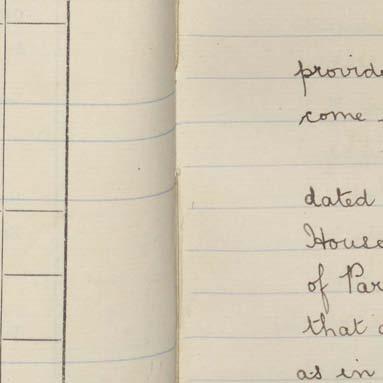 provide
come
dated
House
of Par
that a
as in